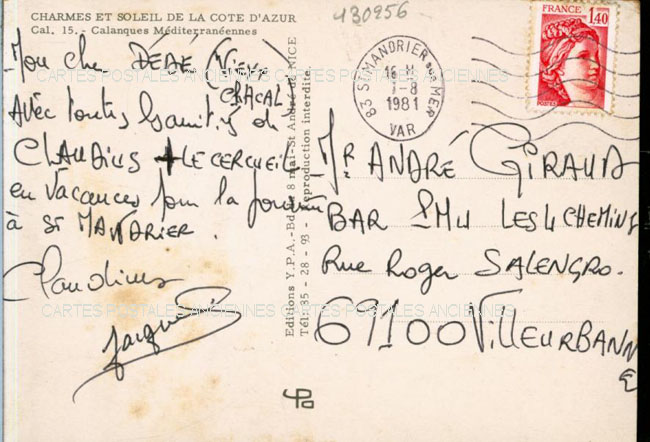 CHARMES ET SOLEIL DE LA COTE D'AZUR
Cal. 15. - Calanques Méditerranéennes
430956
Mon cher DÉDÉ (VIEUX
CHACAL)
Avec toutes les amitiés de
CLAUDIUS + LE CERCUEIL
en vacances pour la journée
à St MANDRIER.
Claudius
Jacques
Editions Y.P.A. - Bd du 8 mai - St André de NICE
Tél. 35 - 28 - 93 - Reproduction interdite.
83 ST MANDRIER SUR MER
16 H
1-8
1981
VAR
FRANCE
1,40
POSTES
Mr ANDRÉ GIRAUD
BAR PMU LES 4 CHEMINS
Rue Roger SALENGRO.
69100 VilleurBANNE
CARTES POSTALES ANCIENNES CARTES POSTALES ANCIENNES
CARTES POSTALES ANCIENNES CARTES POSTALES ANCIENNES